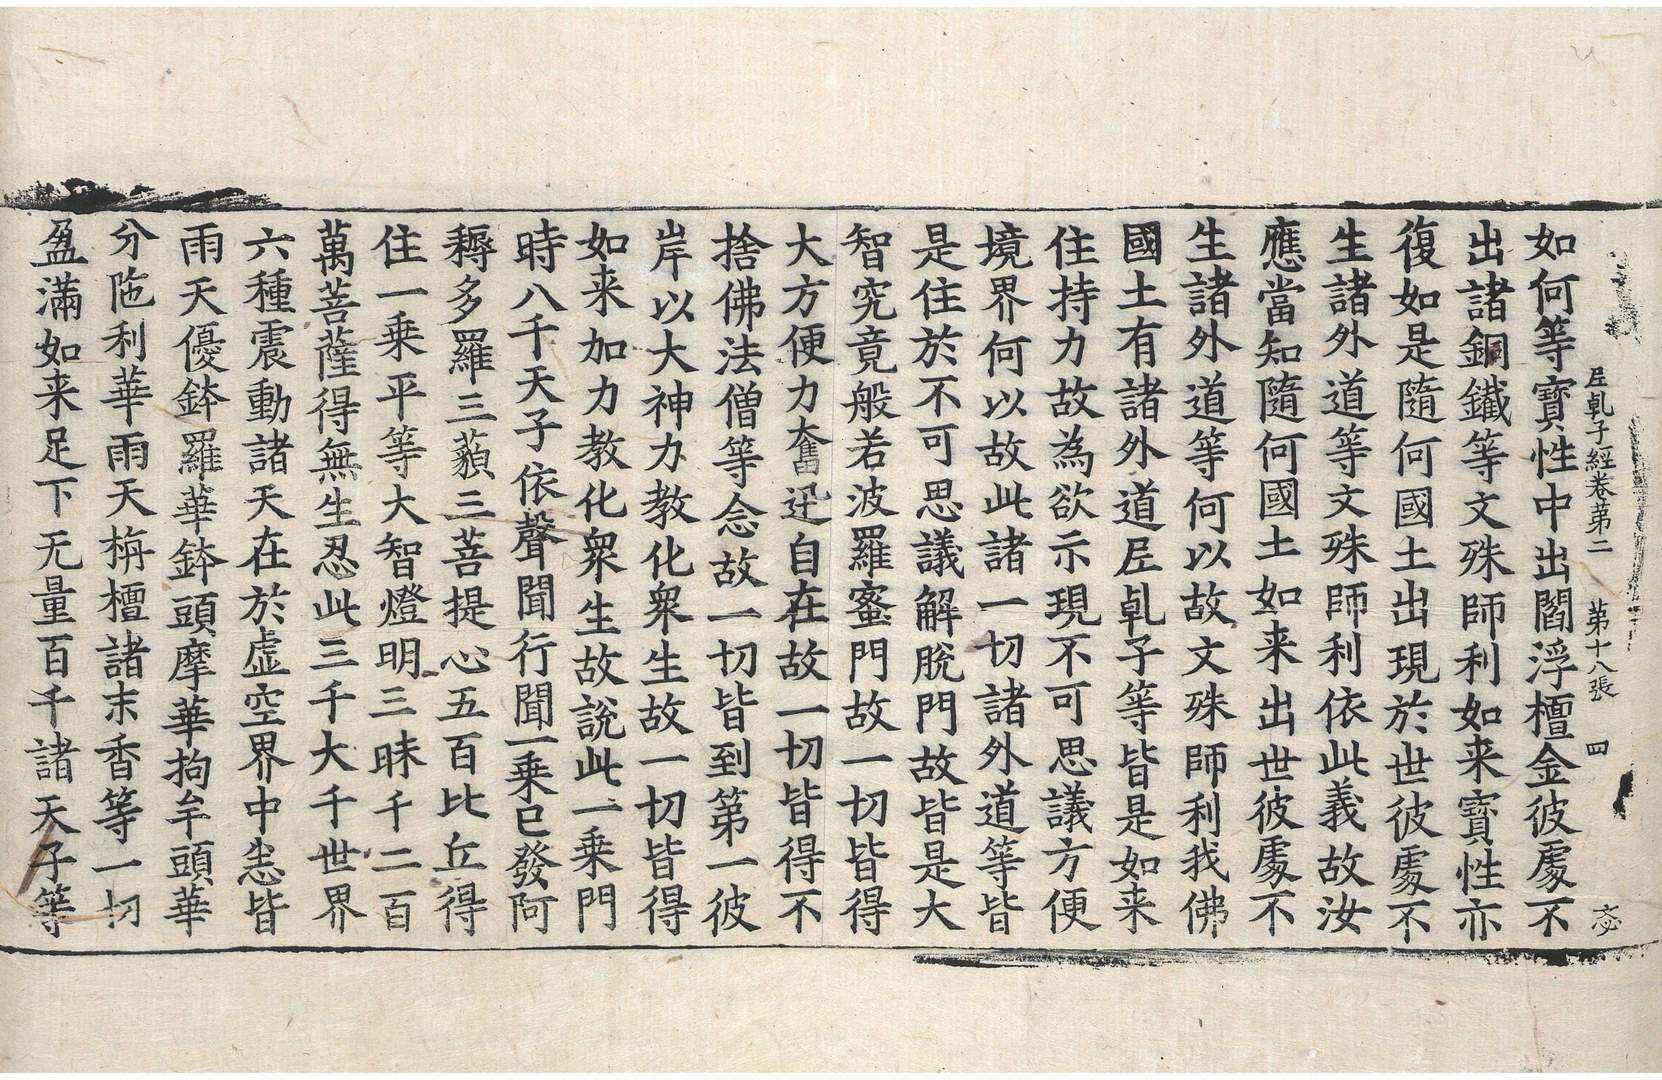 𡰱乹子經卷第二 第十八張 四 必
如何等寶性中出閻浮檀金彼處不
出諸銅鐵等文殊師利如来寶性亦
復如是隨何國土出現於世彼處不
生諸外道等文殊師利依此義故汝
應當知隨何國土如来出世彼處不
生諸外道等何以故文殊師利我佛
國土有諸外道𡰱乹子等皆是如来
住持力故為欲示現不可思議方便
境界何以故此諸一切諸外道等皆
是住於不可思議解脫門故皆是大
智究竟般若波羅蜜門故一切皆得
大方便力奮迅自在故一切皆得不
捨佛法僧等念故一切皆到第一彼
岸以大神力教化衆生故一切皆得
如来加力教化衆生故說此一乗門
時八千天子依聲聞行聞一乗已發阿
耨多羅三藐三菩提心五百比丘得
住一乗平等大智燈明三昧千二百
萬菩薩得無生忍此三千大千世界
六種震動諸天在於虛空界中悉皆
雨天優鉢羅華鉢頭摩華拘牟頭華
分陁利華雨天栴檀諸末香等一切
盈滿如来足下无量百千諸天子等